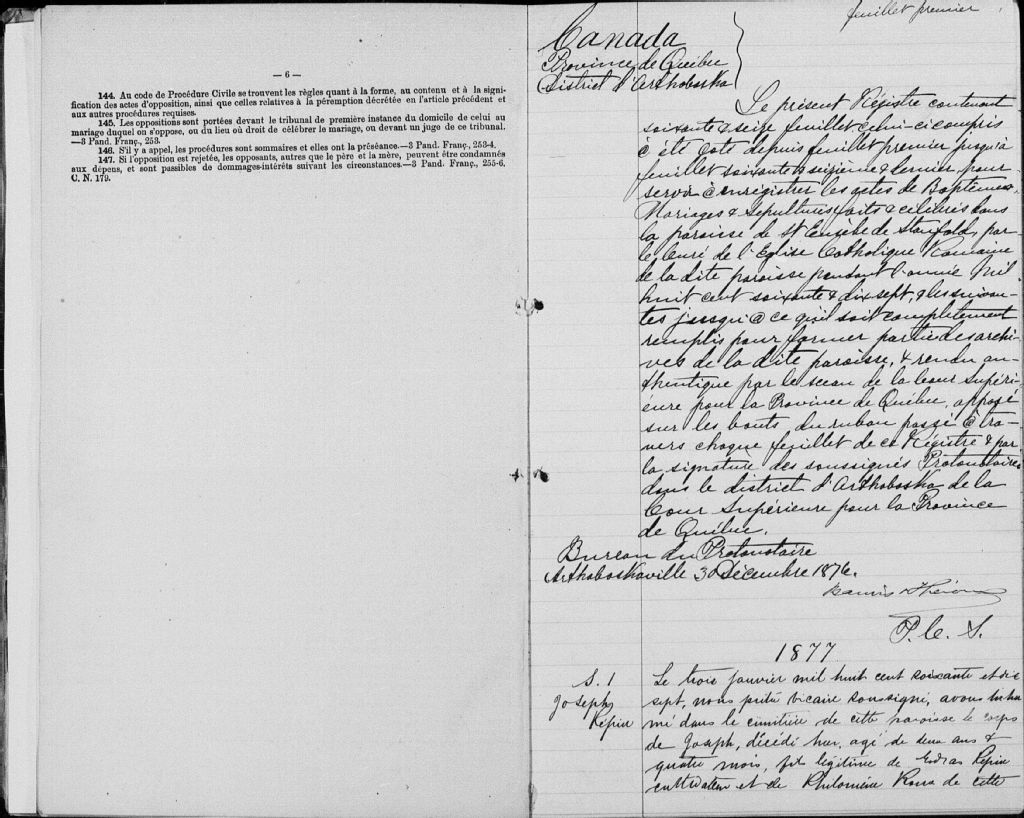 — 6 —
144. Au code de Procédure Civile se trouvent les règles quant à la forme, au contenu et à la signi-
fication des actes d'opposition, ainsi que celles relatives à la péremption décrétée en l'article précédent et
aux autres procédures requises.
145. Les oppositions sont portées devant le tribunal de première instance du domicile de celui au
mariage duquel on s'oppose, ou du lieu où droit de célébrer le mariage, ou devant un juge de ce tribunal.
—3 Pand. Franç., 253.
146. S'il y a appel, les procédures sont sommaires et elles ont la préséance.—3 Pand. Franç., 253-4.
147. Si l'opposition est rejetée, les opposants, autres que le père et la mère, peuvent être condamnés
aux dépens, et sont passibles de dommages-intérêts suivant les circonstances.—3 Pand. Franç., 255-6.
C. N. 179.
feuillet premier
Canada
Province de Québec
District d'Arthabaska
Le présent Régistre contenant
soixante & seize feuillet celui-ci compris
a été coté depuis feuillet premier jusqu'à
feuillet soixante & seizième & dernier, pour
servir à enrégistrer les actes de Baptêmes,
Mariages & Sépultures faits & célébrés dans
la paroisse de St Eusèbe de Stanfold, par
le Curé de l'Eglise Catholique Romaine
de la dite paroisse pendant l'année Mil
huit cent soixante & dix sept, & les suivan-
tes jusqu'à ce qu'il soit complètement
remplis pour former partie des archi-
ves de la dite paroisse, & rendu au-
thentique par le sceau de la Cour Supéri-
eure pour la Province de Québec, apposé
sur les bouts du ruban passé à tra-
vers chaque feuillet de ce Régistre & par
la signature des soussignés Protonotaire
dans le district d'Arthabaska de la
Cour Supérieure pour la Province
de Québec.
Bureau du Protonotaire
Arthabaskaville 30 Décembre 1876.
P. C. S.
1877
S. 1
Joseph
Répin
Le trois janvier mil huit cent soixante et dix
sept, nous prêtre vicaire soussigné, avons inhu
mé dans le cimetière de cette paroisse le corps
de Joseph, décédé hier, agé de deux ans &
quatre mois, fils légitime de Esdras Répin
cultivateur et de Philomène de cette